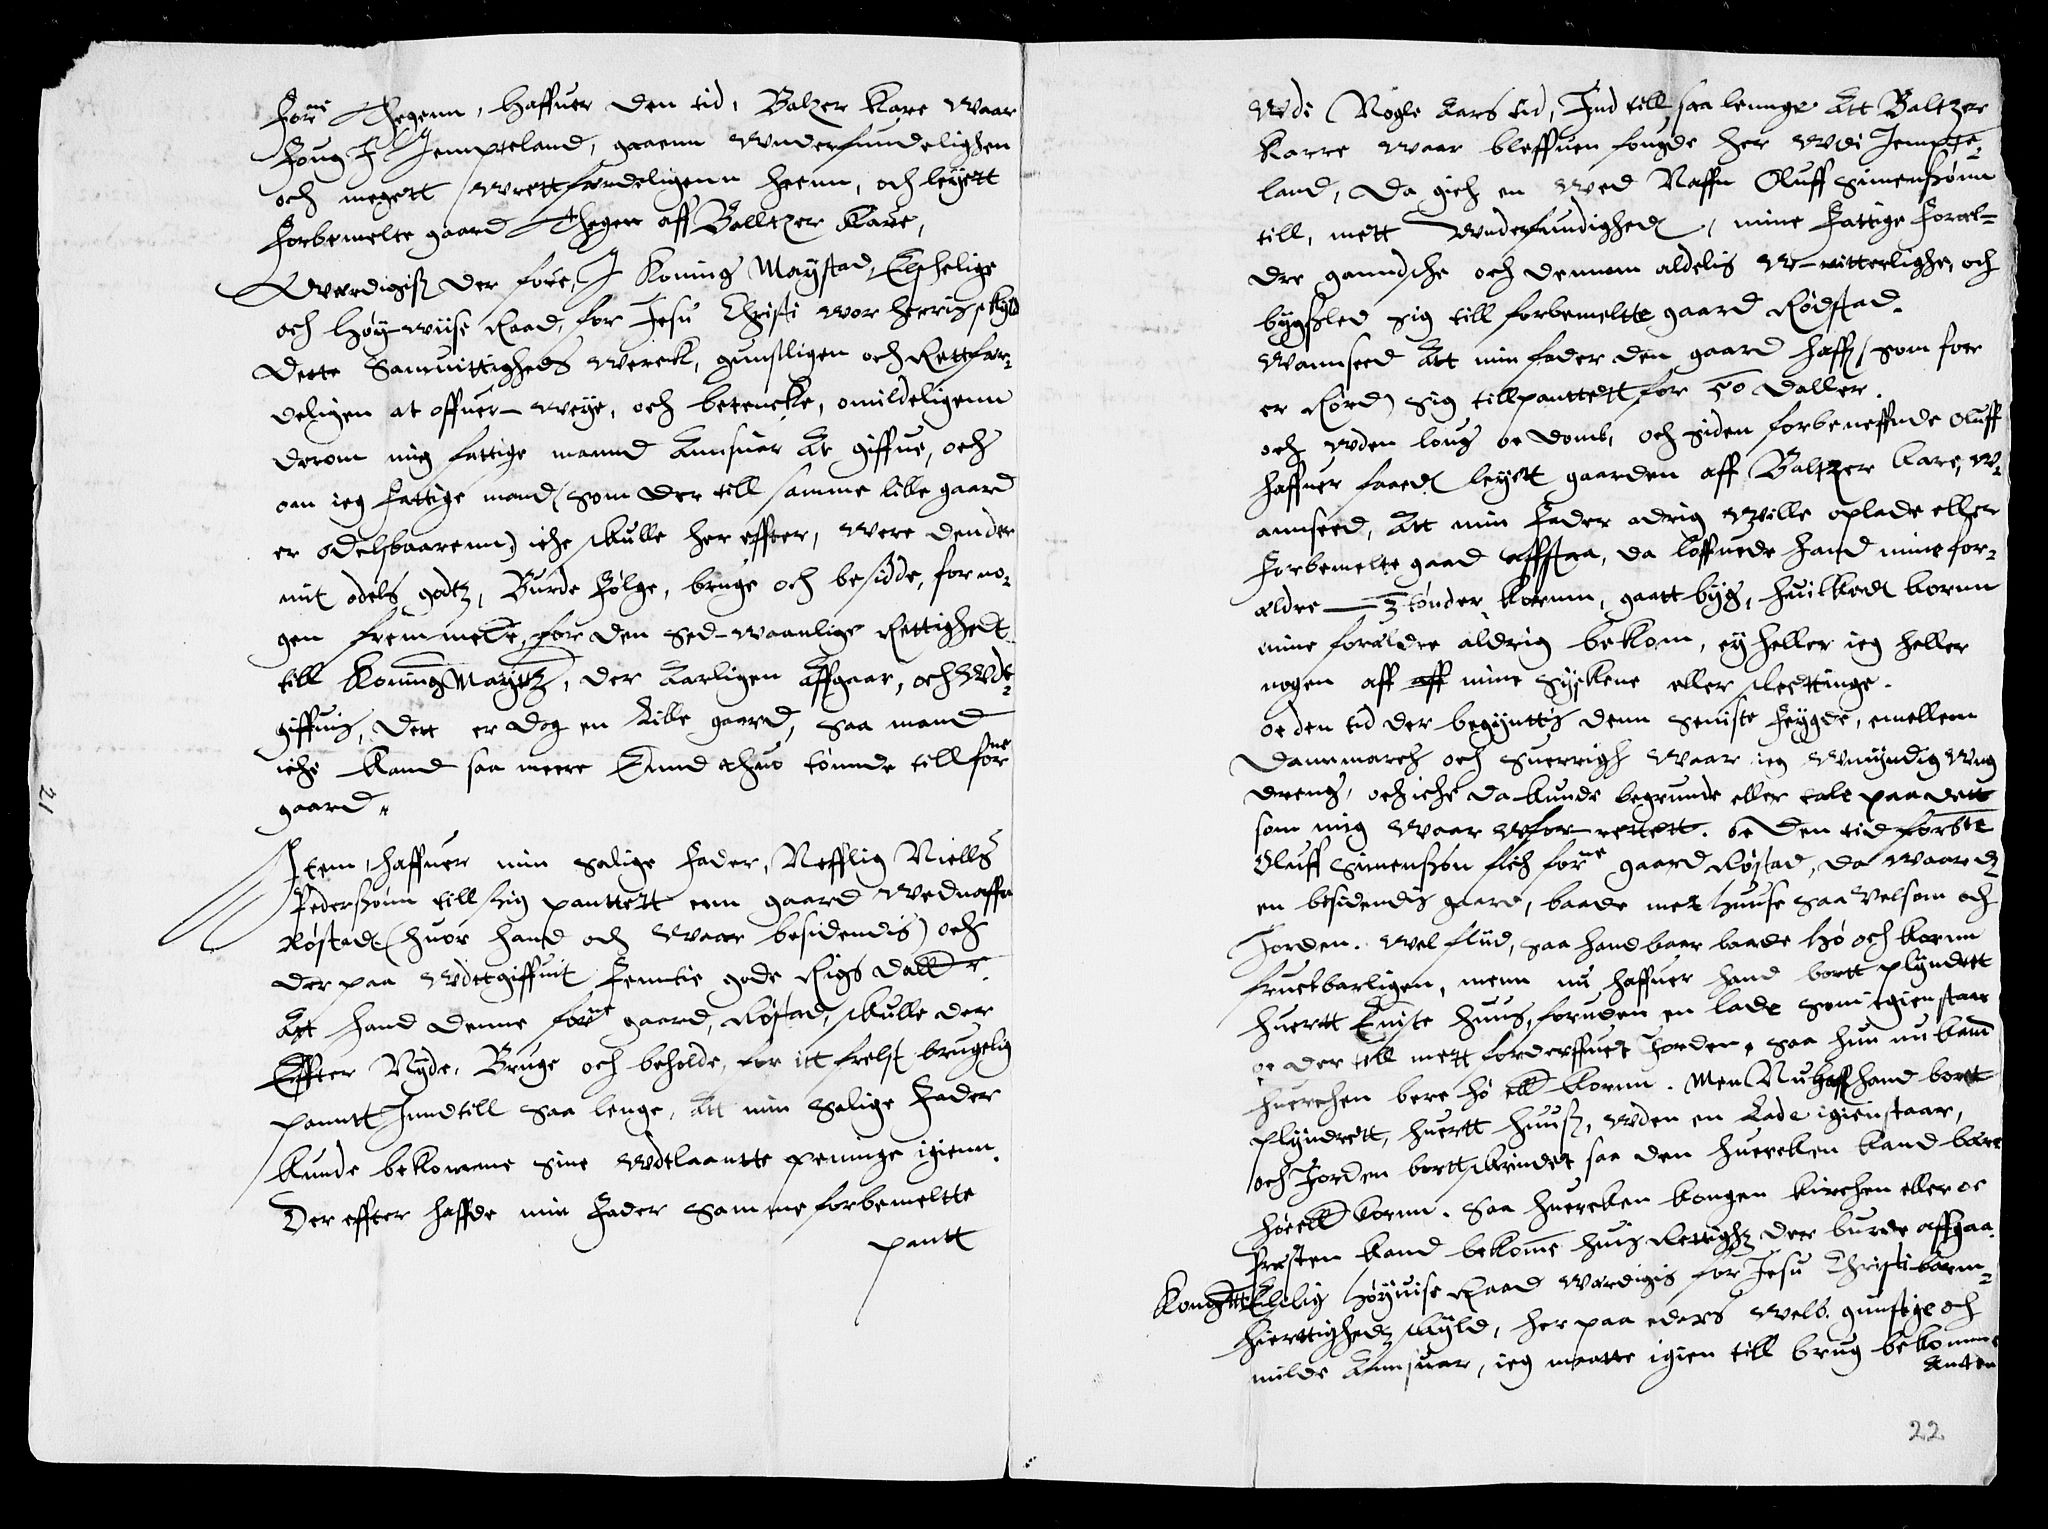 forne Thegenn, haffuer den tid, Balzer Kare waar
foug I Jempteland, gaaenn wnderfundelighen
och megett wrettferdeligenn heenn, och leyett
forbemelte gaard Thegen aff Balltzer Kare,
Werdigist der fore, I Koning Maystad Elschelige
och høy-wiise Raad, for Jesu Christi wor herris skyld
dette Samuittigheds werck, gunstligen och Rettfer-
deligen at offuer-weye, och betencke, omildeligenn
derom mig fattige mannd Annsuar At giffue, och
om ieg fattige mand (som der till samme lille gaard
er odelsbaarenn) iche skulle her effter, were den der
mit odels godtz, Burde følge, bruge och besidde, for no-
gen fremmede, for den sed-waanlige Rettighed
till Koning Maytz, der Aarligen Affgaar, och wdt-
giffuis, dett er dog en lille gaard, saa mand
iche kand saa meere Ennd thuo tønnde till forne
gaard.
Item, haffuer min salige fader, Nefflig Niells
Pederssønn till sig panttett enn gaard wed naffn
Røstad (huor hand och waar besidendis) och
der paa wdetgiffuit femtie gode Rigs daller.
Att hand denne forne gaard, Røstad, skulle der
Effter Nyde, Bruge och beholde, for itt frelst brugelig
panntt Inndtill saa lenge, Att min salige fader
kunde bekomme sine wdtlaantte peninge igienn.
Der effter haffde min fader samme forbemeltte
pantt
21
Wdi Nogle Aars tid, Ind till saa lennge Att Baltzer
Karre waar bleffuen fougde her wdi Jempte-
land, da gich en wed Naffn Oluff Simenssønn
till, mett wnderfundighed, mine fattige foræl-
dre ganndsche och dennom aldelis w-witterlighe, och
bygsled sig till forbemeltte gaard Rødstad.
Wannseed Att min fader den gaard haff, som for
er Rørd, sig tillpanttett for 50 daller.
och wden loug oc domb, och siden forbeneffnde Oluff
haffuer faaed leyett gaarden aff Baltzer Kare, w-
annseed, Att min fader adrig wille oplade eller
forbemelte gaad affstaa, da loffuede hand mine for-
ældre — 3 tønder kornn, gaatt byg, huilked kornn
mine forældre aldrig bekom, ey heller ieg heller
nogen aff aff mine syskene eller slecttinge.
oc den tid der begynttis denn seniste feygde, emellem
Dannmarch och Suerrigh waar ieg wmyndig wng
dreng, och iche da kunde begrunde eller tale paa dett
som mig waar wfor-rettett. oc den tid forbte
Oluff Simenssøn fich forne gaard Røstad, da waar dz
en besidendis gaard, baade met huuse saa velsom och
Jorden. wel flyd, saa hand baar baade hø och kornn
fructbarligen, menn nu haffuer hand bortt plyndret
huertt Eniste huus, foruden en lade som igien staar
oc der till mett forderffuet Jorden, saa hun nu kand
huerchen bere hø elld kornn. Men Nu haff hand bortt
plyndrett, huertt huus, wden en Lade igien staar,
och Jorden bortt skindet saa den huercken kand bære
høe elld kornn. Saa huercken kongen kirchen eller oc
Presten kand bekomme huis Rettighz der burde affgaa.
Kong Mtt Elskelig høyuise Raad werdigis for Jesu Christi barm-
hierttighedz skyld, her paa eders welb. gunstige och
milde Annsuar, ieg maatte igien till brug bekomme
Antten
22